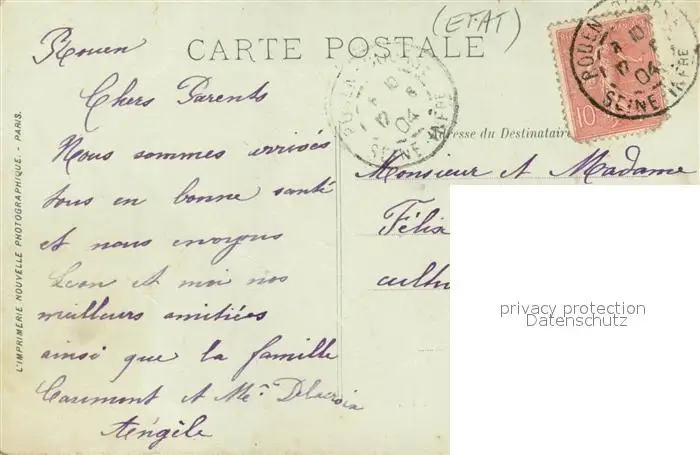 (ETAT)
CARTE POSTALE
Rouen
Chers Parents
Nous sommes arrivés
tous en bonne santé
et nous envoyons
Leon et moi nos
meilleurs amitiées
ainsi que la famille
Caremont et Me. Delacroix
Adresse du Destinataire
Monsieur et Madame
Félix
cultiv
ROUEN
10
04
SEINE INFRE
ROUEN
10
04
SEINE INFRE
10
L'IMPRIMERIE NOUVELLE PHOTOGRAPHIQUE. - PARIS.
privacy protection
Datenschutz